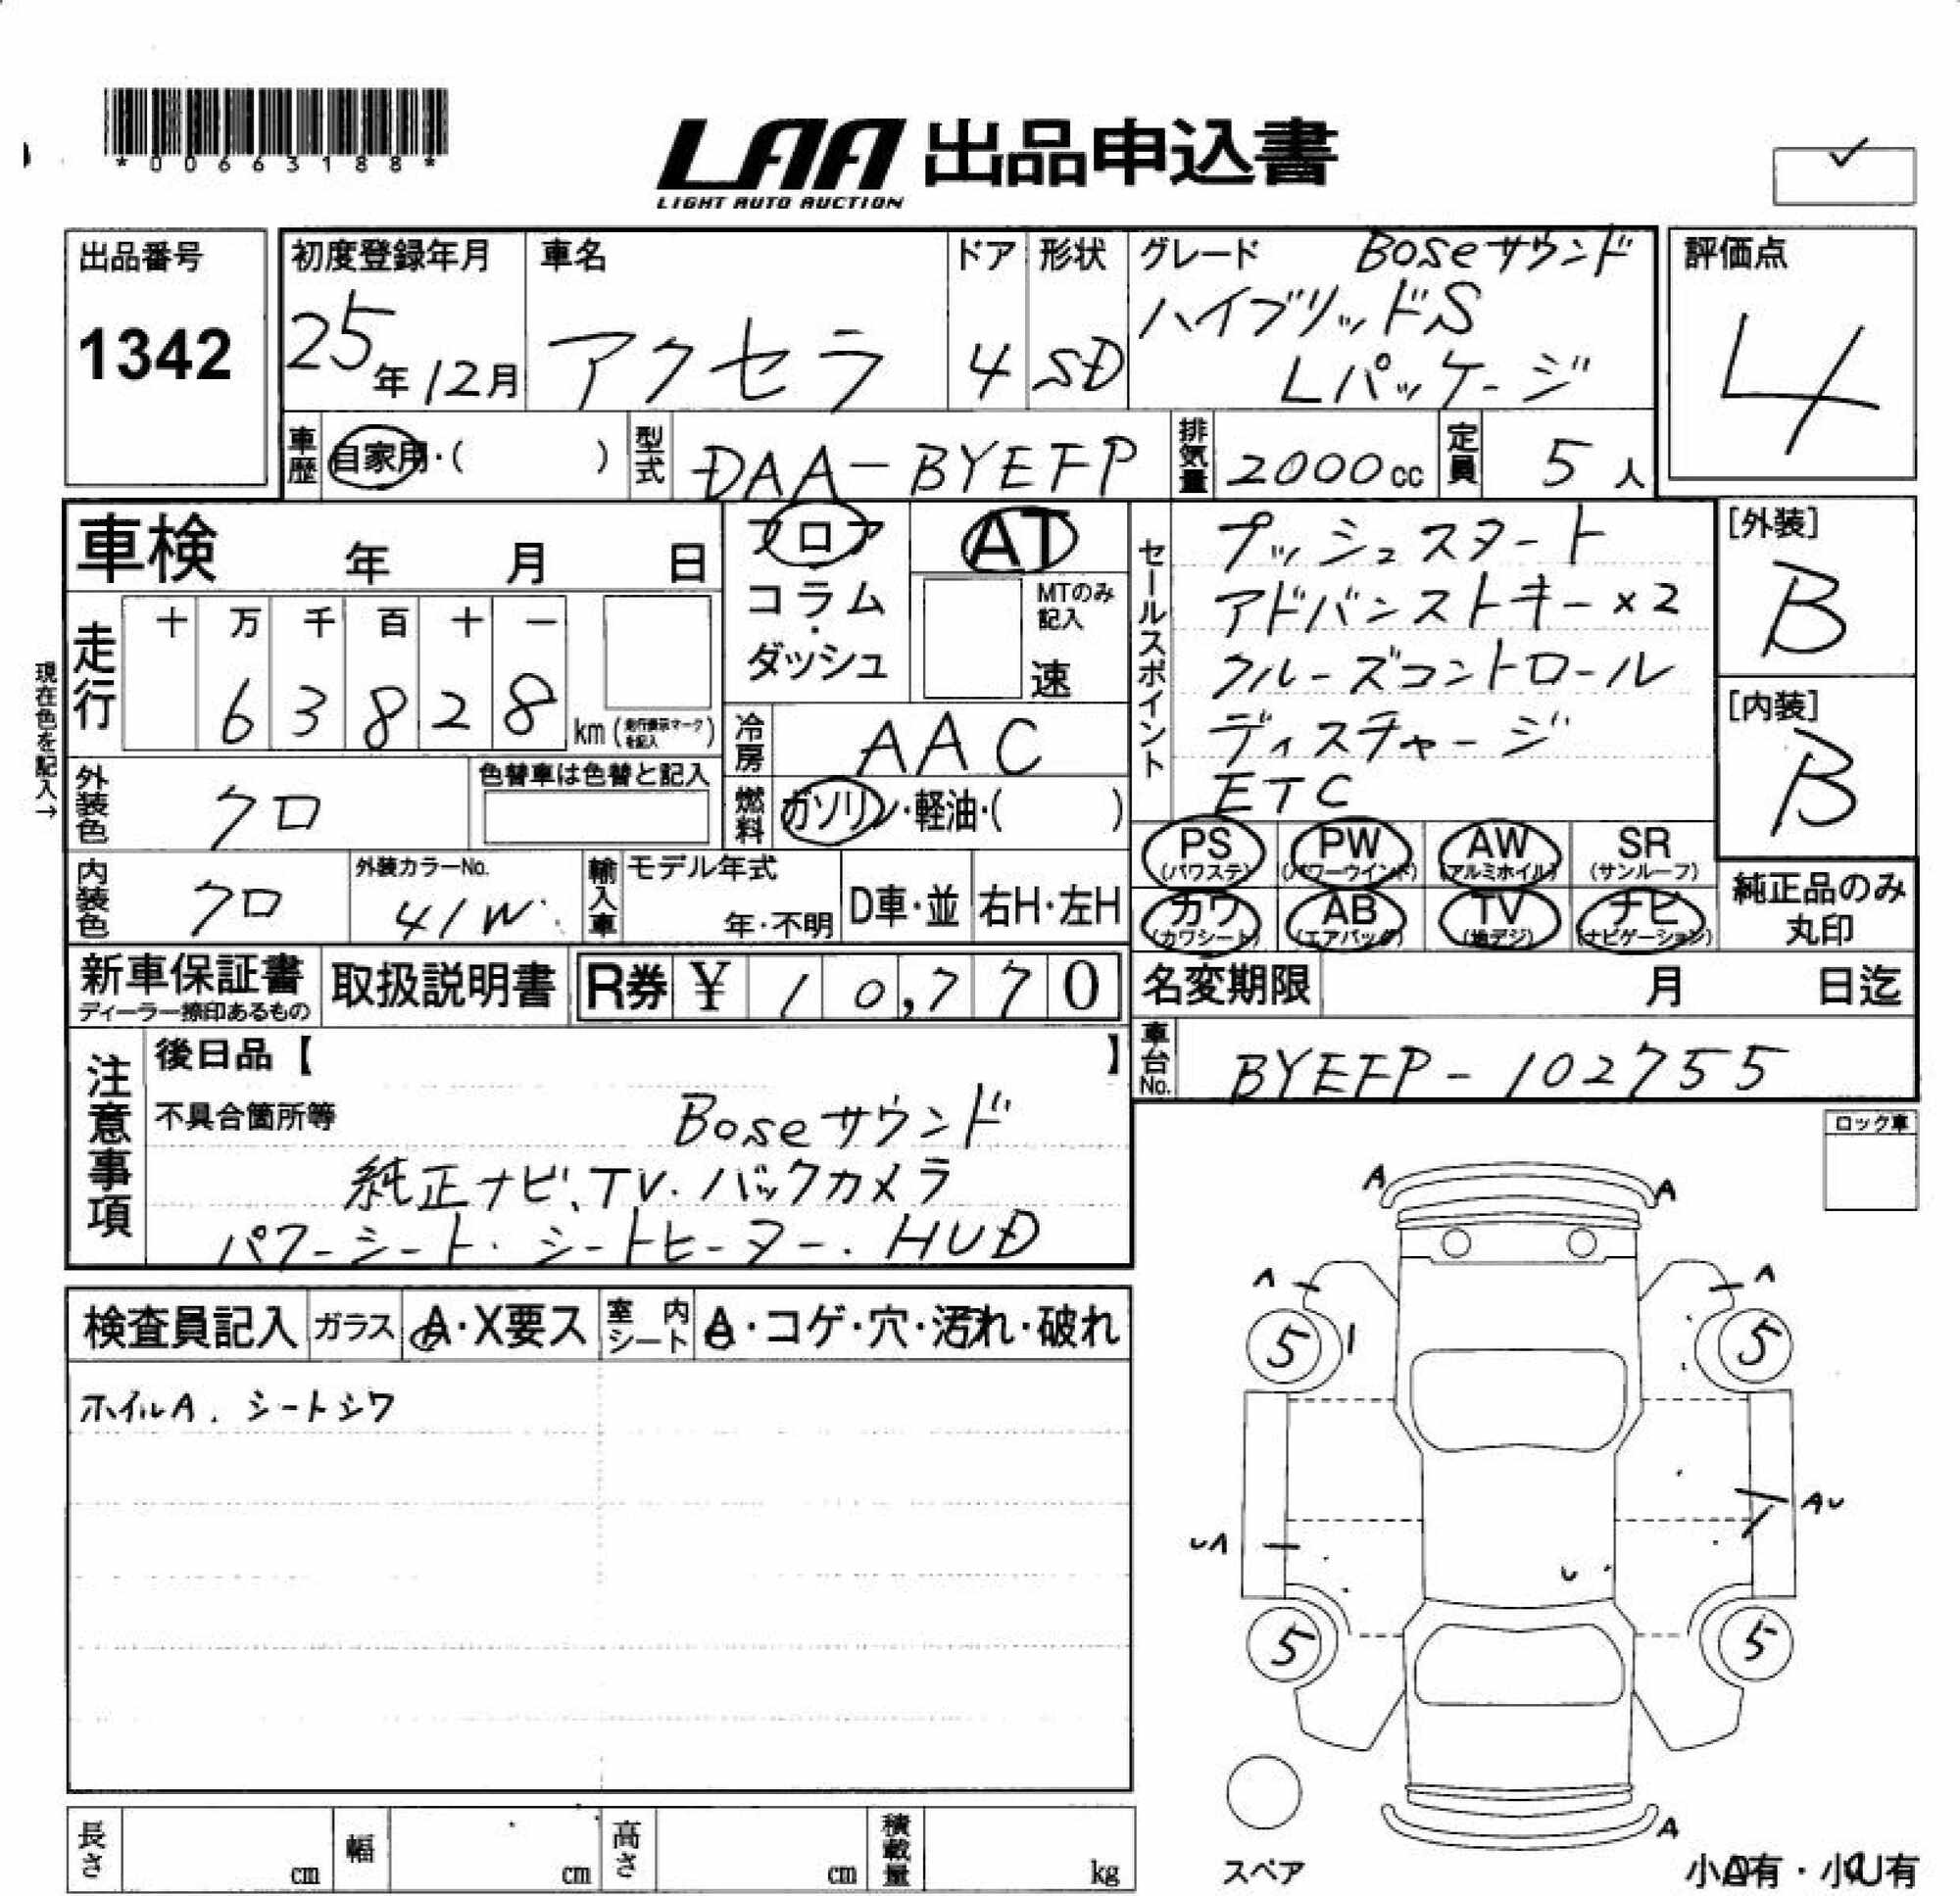 *00663188*
LAA 出品申込書
LIGHT AUTO AUCTION
出品番号
1342
初度登録年月
25年12月
車名
アクセラ
ドア
4
形状
SD
グレード Boseサウンド
ハイブリッドS
Lパッケージ
評価点
4
車歴 自家用・( )
型式 DAA-BYEFP
排気量 2000cc
定員 5人
車検 年 月 日
フロア
・
コラム
・
ダッシュ
AT
MTのみ
記入
速
セールスポイント
プッシュスタート
アドバンストキー×2
クルーズコントロール
ディスチャージ
ETC
[外装]
B
[内装]
B
現在色を記入→
走行
十 万 千 百 十 一
6 3 8 2 8 km(走行表示マークを記入)
冷房 AAC
外装色 クロ
色替車は色替と記入
燃料 ガソリン・軽油・( )
PS (パワステ) PW (パワーウインド) AW (アルミホイル) SR (サンルーフ)
カワ (カワシート) AB (エアバッグ) TV (地デジ) ナビ (ナビゲーション)
純正品のみ
丸印
内装色 クロ
外装カラーNo.
41W
輸入車
モデル年式
年・不明
D車・並
右H・左H
新車保証書
ディーラー捺印あるもの
取扱説明書
R券 ¥ 10,770
名変期限 月 日迄
車台No. BYEFP-102755
注意事項
後日品【 】
不具合箇所等 Boseサウンド
純正ナビ、TV.バックカメラ
パワーシート.シートヒーター.HUD
ロック車
検査員記入 ガラス A・X要ス 室内シート A・コゲ・穴・汚れ・破れ
ホイルA. シートシワ
A A
A A
5 5
AU
UA
U
5 5
A
スペア
小A有・小U有
長さ cm 幅 cm 高さ cm 積載量 kg